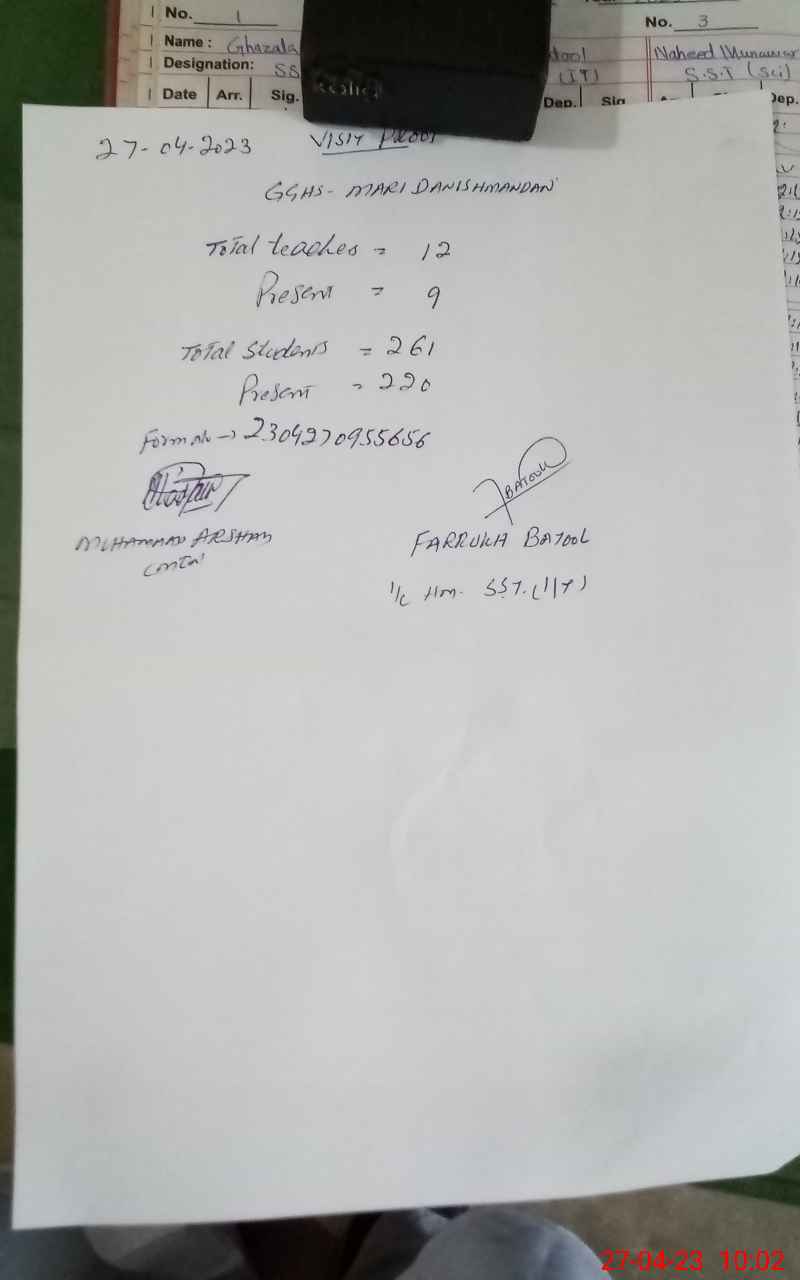 No. 1
No. 3
Name : Ghazala
Naheed Munawar
Designation: SS
(IT)
S.S.T (Sci)
Date Arr. Sig.
Dep. Sig
Dep.
27-04-2023 VISIT PROOF
GGHS - MARI DANISHMANDAN
Total teaches = 12
Present = 9
Total Students = 261
Present = 220
2304270955656
BATOOL
MUHAMMAD ARSHAD
FARRUKH BATOOL
I/C Hm. SST. (I/T)
27-04-23 10:02